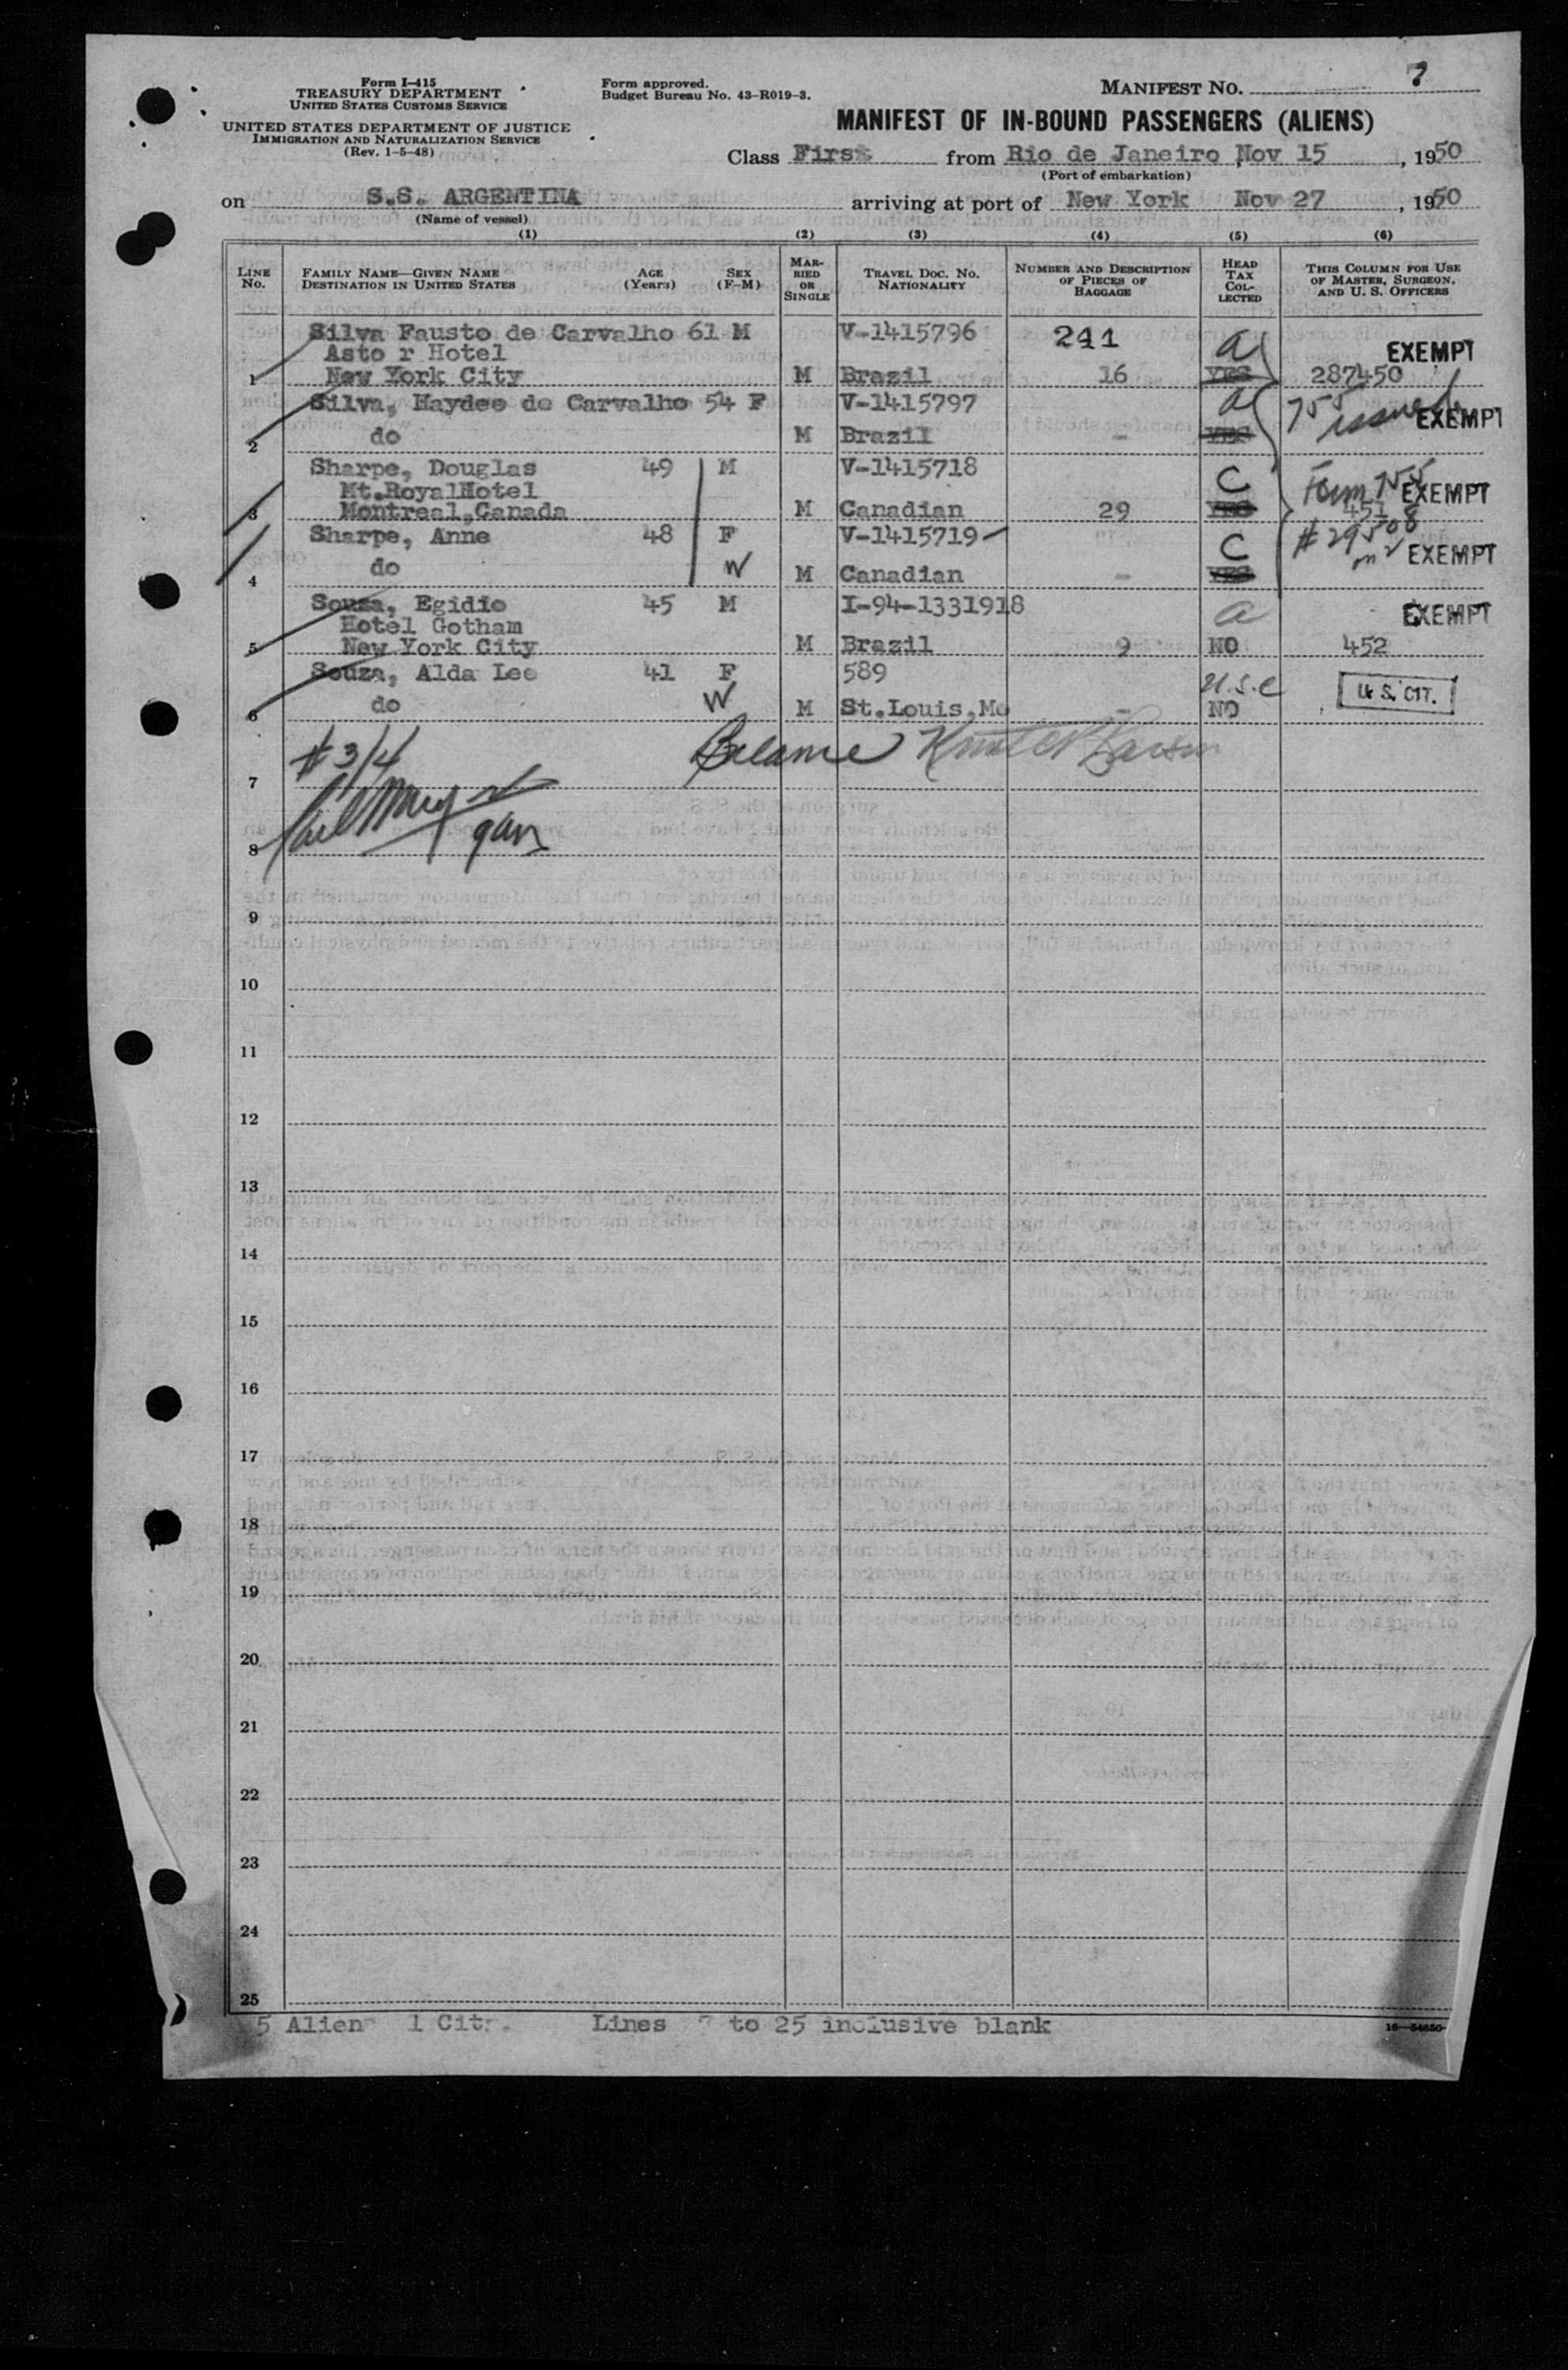 Form I-415
TREASURY DEPARTMENT
UNITED STATES CUSTOMS SERVICE
UNITED STATES DEPARTMENT OF JUSTICE
IMMIGRATION AND NATURALIZATION SERVICE
(Rev. 1-5-48)
Form approved.
Budget Bureau No. 43-R019-3.
MANIFEST NO. 7
MANIFEST OF IN-BOUND PASSENGERS (ALIENS)
Class First from Rio de Janeiro Nov 15, 1950
(Port of embarkation)
on S.S. ARGENTINA arriving at port of New York Nov 27, 1950
(Name of vessel)
(1) (2) (3) (4) (5) (6)
LINE No. FAMILY NAME—GIVEN NAME DESTINATION IN UNITED STATES AGE (Years) SEX (F-M) MARRIED OR SINGLE TRAVEL DOC. NO. NATIONALITY NUMBER AND DESCRIPTION OF PIECES OF BAGGAGE HEAD TAX COLLECTED THIS COLUMN FOR USE OF MASTER, SURGEON, AND U. S. OFFICERS
Silva Fausto de Carvalho 61 M V-1415796 241 a
Asto r Hotel EXEMPT
1 New York City M Brazil 16 YES 287450
Silva, Haydee de Carvalho 54 F V-1415797 a 755 issued EXEMPT
2 do M Brazil - YES
Sharpe, Douglas 49 M V-1415718 C Form 755
Mt.RoyalHotel EXEMPT
3 Montreal,Canada M Canadian 29 YES 451
Sharpe, Anne 48 F V-1415719 C #29508
4 do W M Canadian - YES EXEMPT
Souza, Egidio 45 M I-94-1331918 a EXEMPT
Hotel Gotham
5 New York City M Brazil 9 NO 452
Souza, Alda Lee 41 F 589 U.S.C U.S. CIT.
6 do W M St.Louis,Mo - NO
#3/4 Balance
7
8
9
10
11
12
13
14
15
16
17
18
19
20
21
22
23
24
25
5 Alien 1 Cit. Lines 7 to 25 inclusive blank